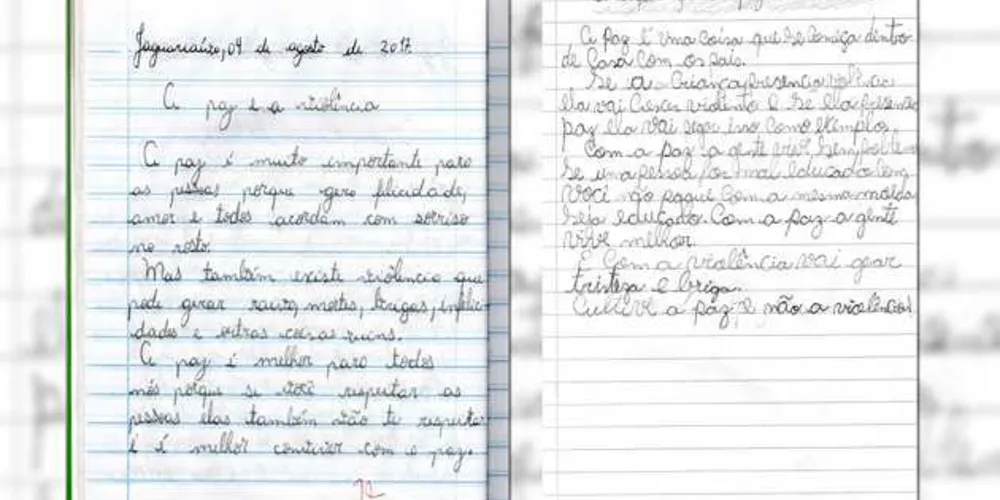 Jaguariaíva, 04 de agosto de 2017.
A paz e a violência
A paz é muito importante para
as pessoas porque gera felicidade,
amor e todos acordam com sorriso
no rosto.
Mas também existe violência que
pode gerar mortes, brigas, infelici
dades e outras coisas ruins.
A paz é melhor para todos
nós porque se você respeitar as
pessoas elas também vão te respeitar
e é melhor conviver com a paz.
A Paz é uma coisa que se começa dentro
de Casa com os pais.
Se a criança presencia violência
ela vai crescer violento e se ela presencia
paz ela vai seguir isso como exemplos.
Com a paz a gente vive sem
se uma pessoa for mal educado com
você não pague com a mesma moeda
seja educado. Com a paz a gente
vive melhor.
E com a violência vai gerar
tristeza e briga.
Cultive a paz e não a violência!